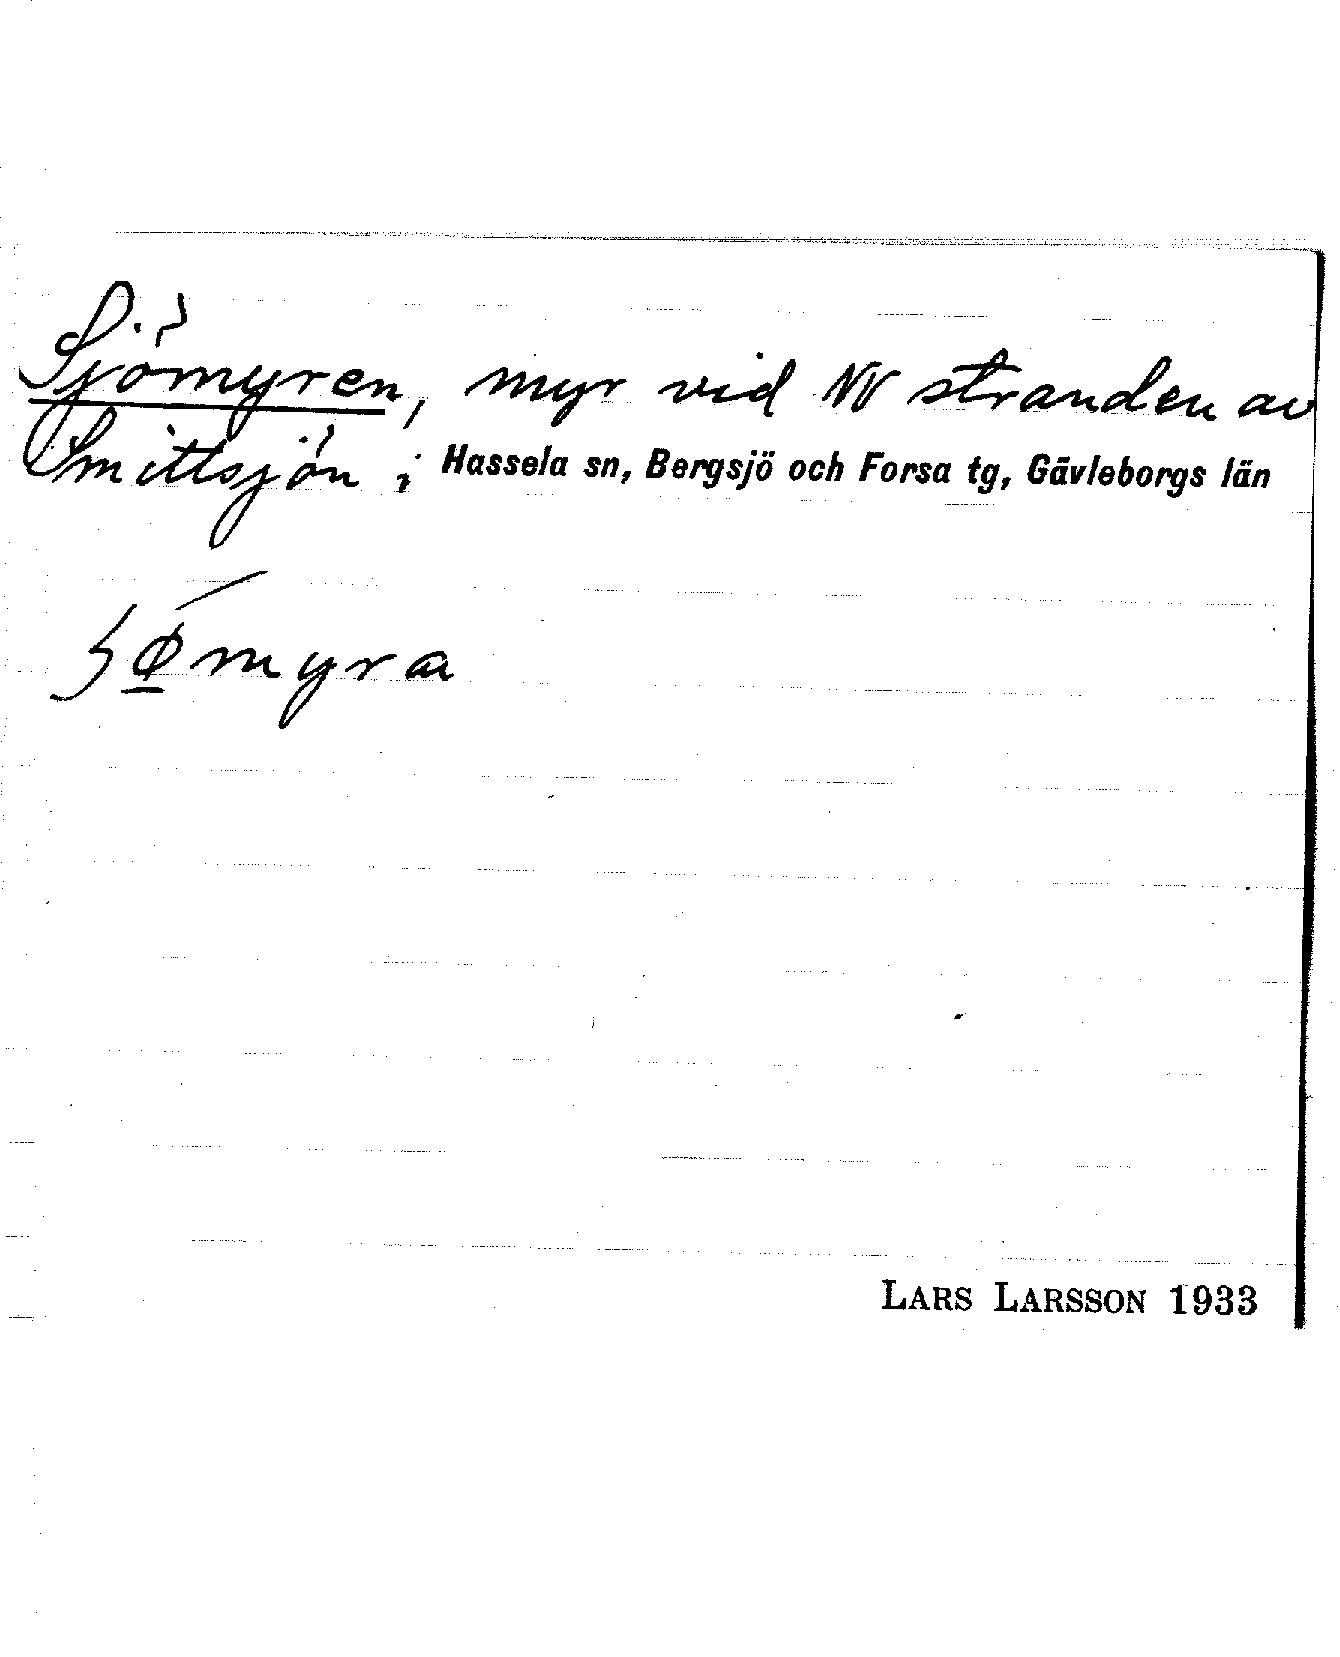 Sjömyren, myr vid NV stranden av
Smittsjön i Hassela sn, Bergsjö och Forsa tg, Gävleborgs län
ʃǿ̱myra
LARS LARSSON 1933